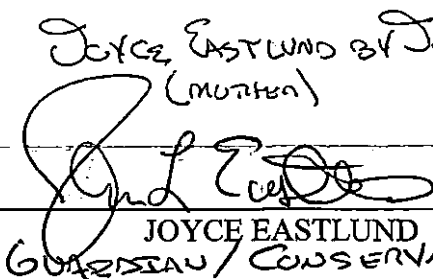 JOYCE EASTLUND BY J
(MOTHER)
JOYCE EASTLUND
GUARDIAN / CONSERVA